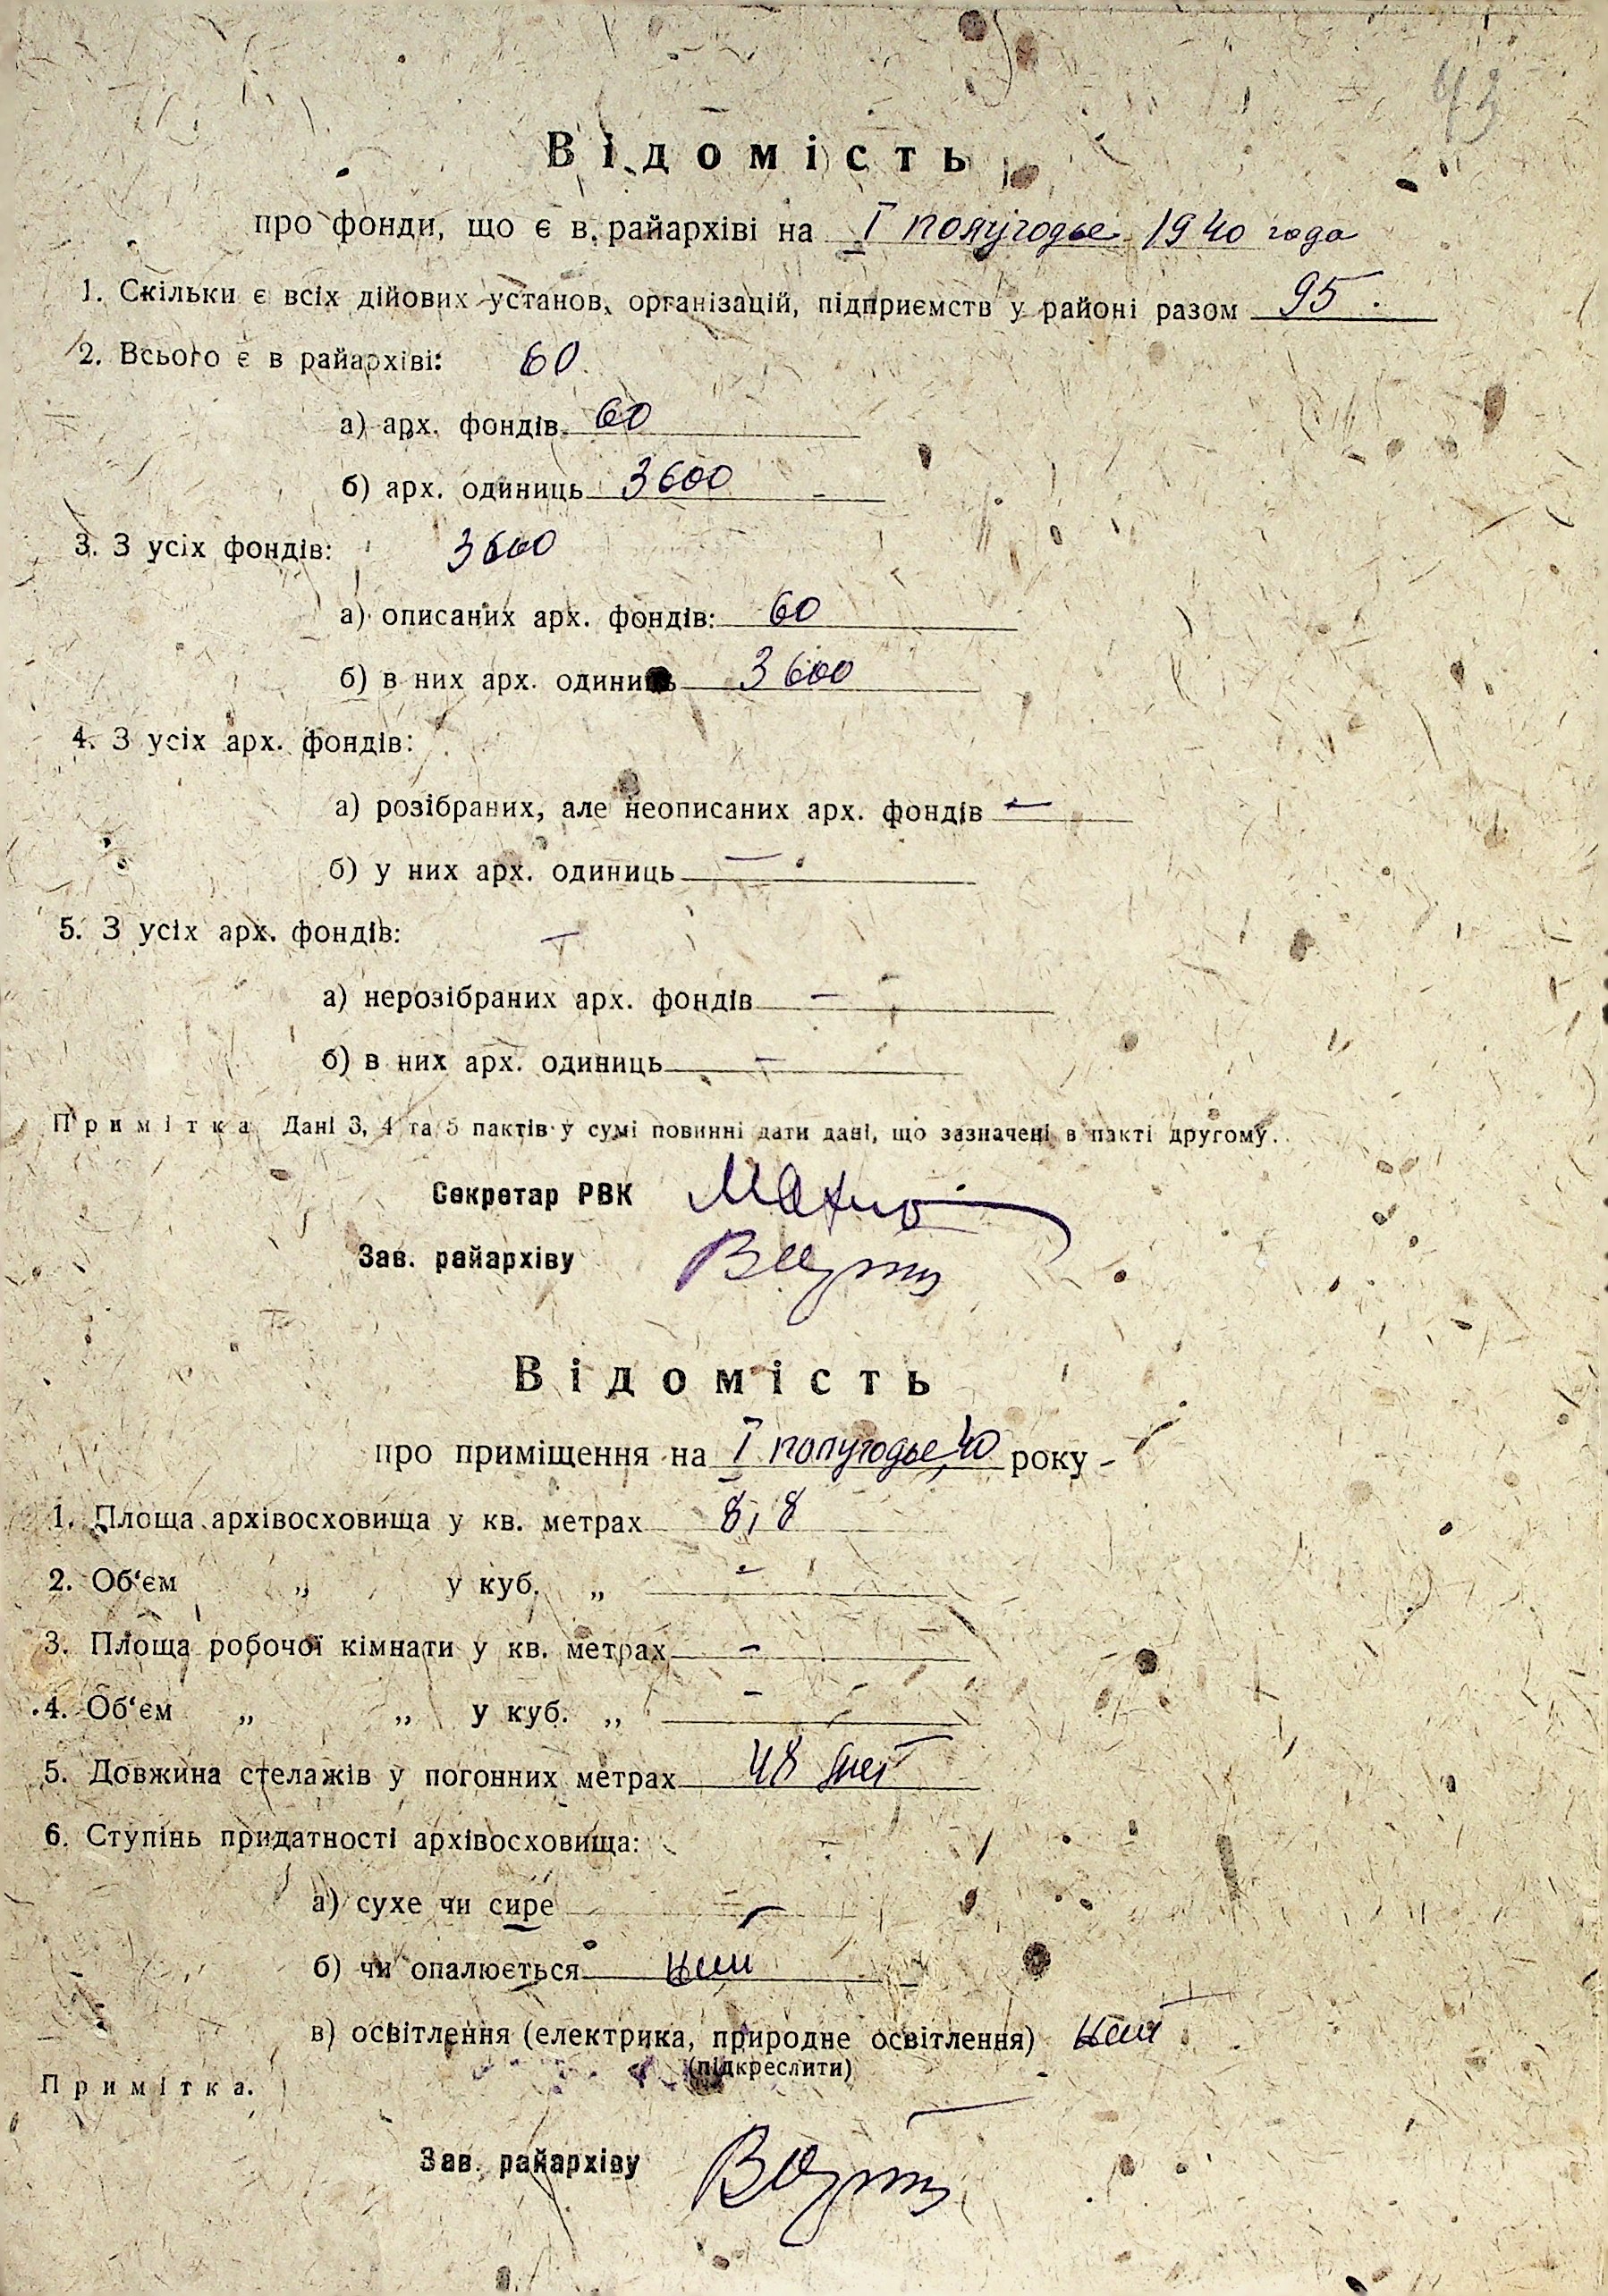 43
Відомість
про фонди, що є в райархіві на I полугодье 1940 года
1. Скільки є всіх дійових установ, організацій, підприємств у районі разом 95.
2. Всього є в райархіві: 60
а) арх. фондів 60
б) арх. одиниць 3600
3. З усіх фондів: 3600
а) описаних арх. фондів: 60
б) в них арх. одиниць 3600
4. З усіх арх. фондів:
а) розібраних, але неописаних арх. фондів —
б) у них арх. одиниць —
5. З усіх арх. фондів: —
а) нерозібраних арх. фондів —
б) в них арх. одиниць —
Примітка Дані 3, 4 та 5 пактів у сумі повинні дати дані, що зазначені в пакті другому.
Секретар РВК
Зав. райархіву
Відомість
про приміщення на I полугодье 40 року
1. Площа архівосховища у кв. метрах 8,8
2. Об'єм „ у куб. „ —
3. Площа робочої кімнати у кв. метрах —
4. Об'єм „ „ у куб. „ —
5. Довжина стелажів у погонних метрах 48
6. Ступінь придатності архівосховища:
а) сухе чи сире —
б) чи опалюється
в) освітлення (електрика, природне освітлення)
(підкреслити)
Примітка.
Зав. райархіву